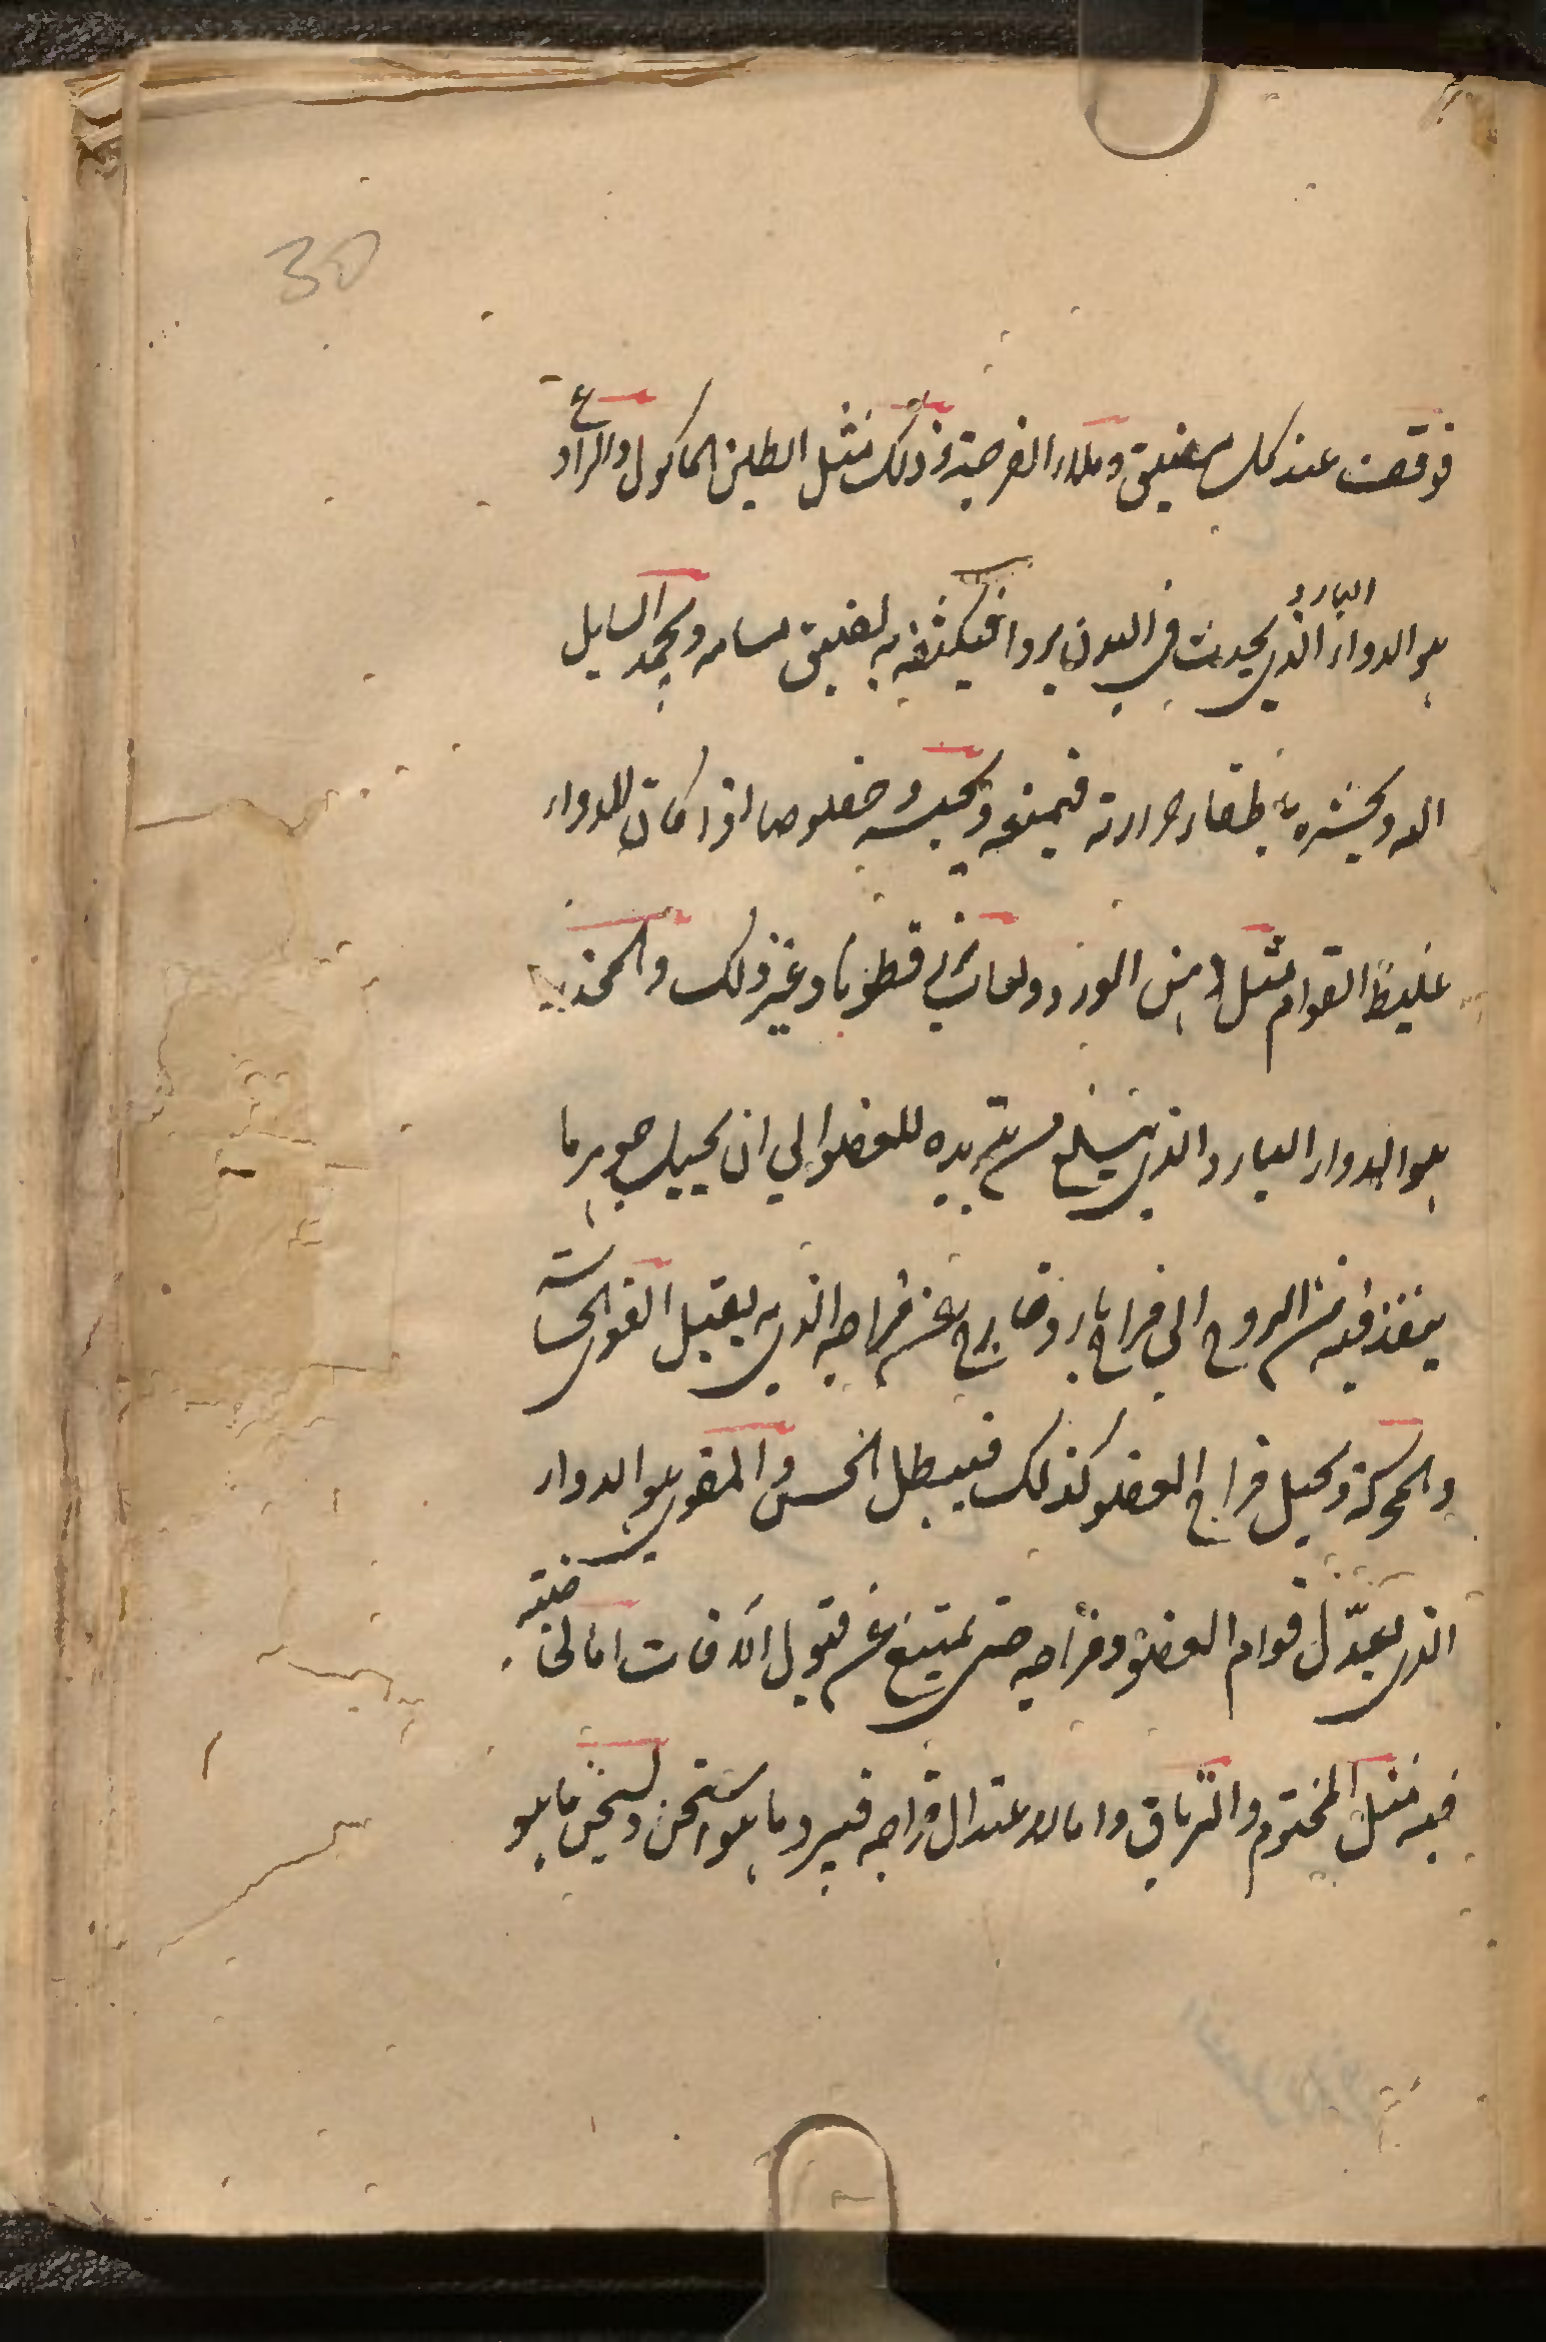 30
فوقفت عند كل مضيق وملاء الفرجة وذلك مثل الطين الماكول والرادع
هو الدواء البارد الذي يحدث في البدن بردا فيكثفه به لضيق مسامه ويجمد السايل
اليه ويخثره باطفاء حرارته فيمنعه ويحبسه خصوصا اذا كان الدواء
غليظ القوام مثل دهن الورد ولعاب بزر قطونا وغير ذلك والمخدر
هو الدواء البارد الذي يبلغ من تبريده للعضو الي ان يحيل جوهر ما
ينفذ فيه من الروح الي مزاج بارد خارج عن مزاجه الذي به يقبل القوي الحساسة
والمحركة ويحيل مزاج العضو كذلك فيبطل الحس والمقوي هو الدواء
الذي يعدّل قوام العضو ومزاجه حتي يمتنع عن قبول الافات اما لخاصية
فيه مثل المختوم والترياق واما لاعتدال مزاجه فيبرد ما هو اسخن ويسخن ما هو